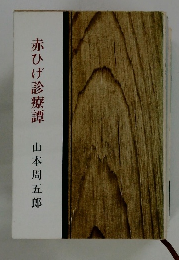 赤ひげ診療譚
山本周五郎